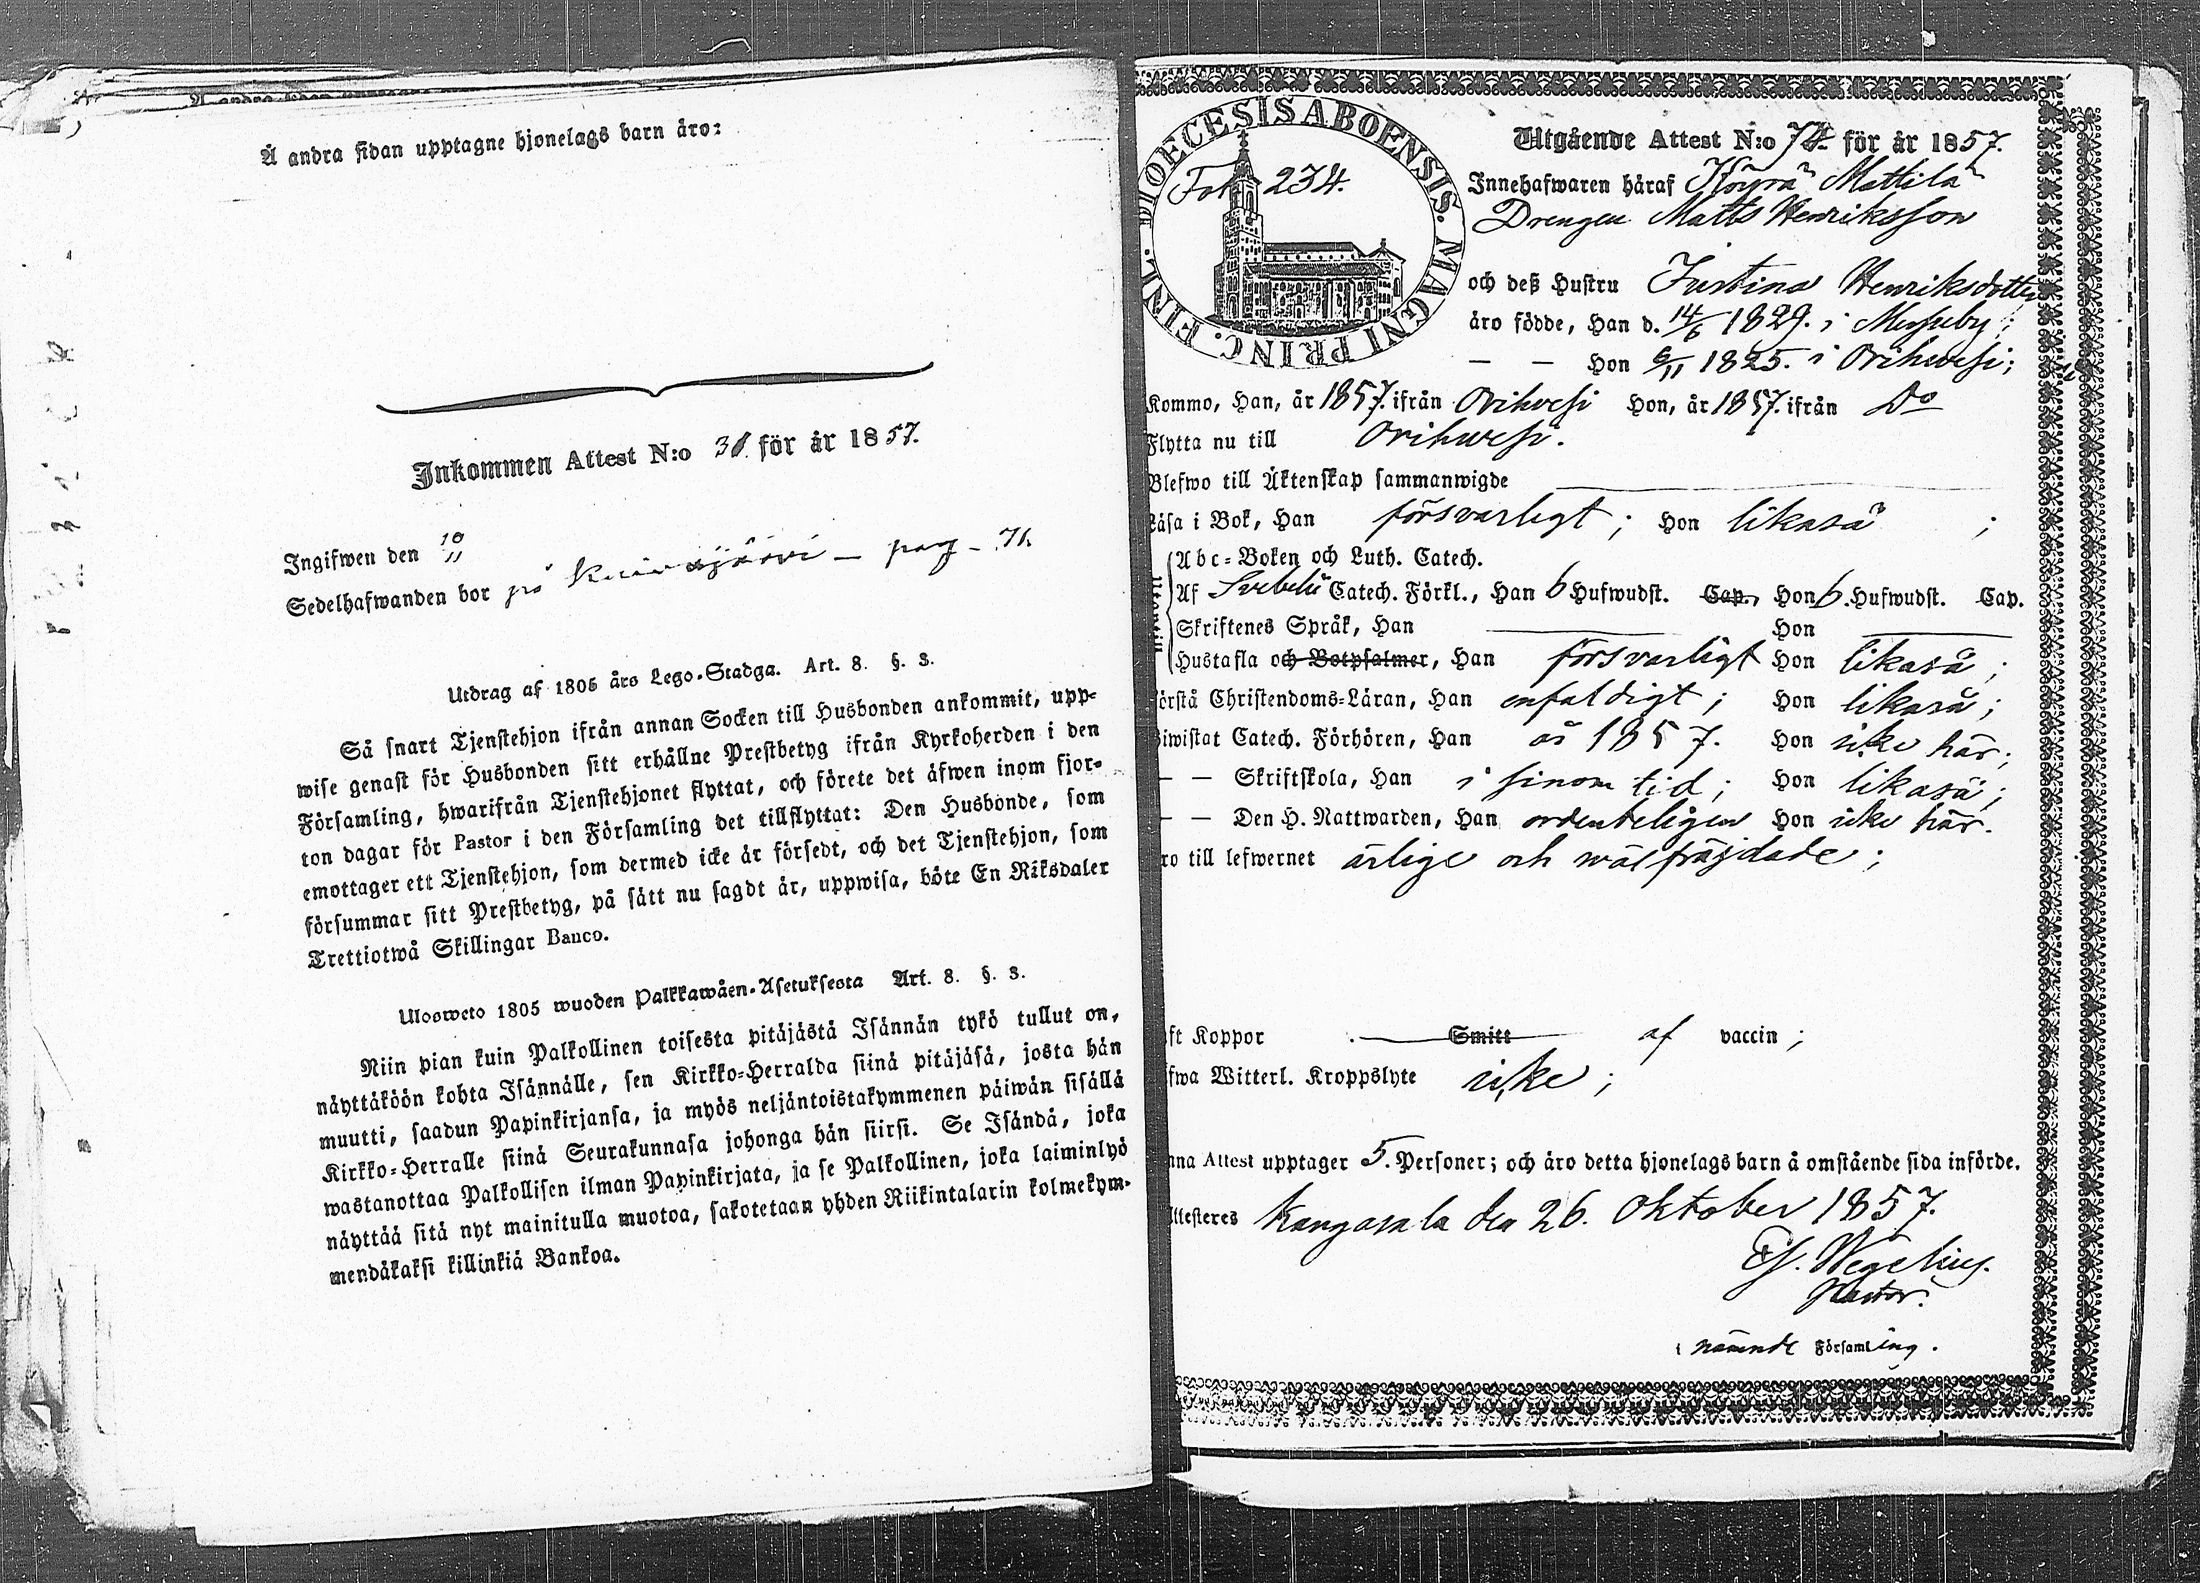 Å andra sidan upptagne hjonelags barn äro:
Inkommen Attest N:o 38. för år 1857.
Ingifwen den 10/11
Sedelhafwanden bor på – pag – 71.
Utdrag af 1805 års Lego-Stadga. Art. 8. §. 3.
Så snart Tjenstehjon ifrån annan Socken till Husbonden ankommit, upp-
wise genast för Husbonden sitt erhållne Prestbetyg ifrån Kyrkoherden i den
Församling, hwarifrån Tjenstehjonet flyttat, och förete det äfwen inom fjor-
ton dagar för Pastor i den Församling det tillflyttat: Den Husbonde, som
emottager ett Tjenstehjon, som dermed icke är försedt, och det Tjenstehjon, som
försummar sitt Prestbetyg, på sätt nu sagdt är, uppwisa, böte En Riksdaler
Trettiotwå Skillingar Banco.
Ulosweto 1805 wuoden Palkkawäen-Asetuksesta Art. 8. §. 3.
Niin pian kuin Palkollinen toisesta pitäjästä Isännän tykö tullut on,
näyttäköön kohta Isännälle, sen Kirkko-Herralda siinä pitäjäsä, josta hän
muutti, saadun Papinkirjansa, ja myös neljäntoistakymmenen päiwän sisällä
Kirkko-Herralle siinä Seurakunnasa johonga hän siirsi. Se Isändä, joka
wastanottaa Palkollisen ilman Papinkirjata, ja se Palkollinen, joka laiminlyö
näyttää sitä nyt mainitulla muotoa, sakotetaan yhden Riikintalarin kolmekym-
mendäkaksi killinkiä Bankoa.
DIOECESIS ABOENSIS. MAGNI PRINC. FINL.
Fol. 234.
Utgående Attest N:o 74 för år 1857.
Innehafwaren häraf Höyrä Mattila
Drengen Matts Henriksson
och deß Hustru Justina Henriksdotter
äro födde, Han d. 14/6 1829. i Messuby;
— — Hon 6/11 1825. i Orihwesi;
Kommo, Han, år 1857. ifrån Orihvesi Hon, år 1857. ifrån Do
Flytta nu till Orihwesi.
Blefwo till Äktenskap sammanwigde
Läsa i Bok, Han försvarligt; Hon likaså;
Abc-Boken och Luth. Catech.
Af Svebelii Catech. Förkl., Han 6 Hufwudst. Cap., Hon 6. Hufwudst. Cap.
Skriftenes Språk, Han Hon
Hustafla och Botpsalmer, Han försvarligt Hon likaså;
örstå Christendoms-Läran, Han enfaldigt; Hon likaså;
iwistat Catech. Förhören, Han år 1857. Hon icke här;
— — Skriftskola, Han i sinom tid; Hon likaså;
— — Den H. Nattwarden, Han ordenteligen Hon icke här.
ro till lefwernet ärlige och wälfräjdade;
ft Koppor Smitt af vaccin;
fwa Witterl. Kroppslyte icke;
nna Attest upptager 5. Personer; och äro detta hjonelags barn å omstående sida införde.
ttesteres Kangasala den 26. Oktober 1857.
Wegelius.
Pastor.
i nämnde Församling.